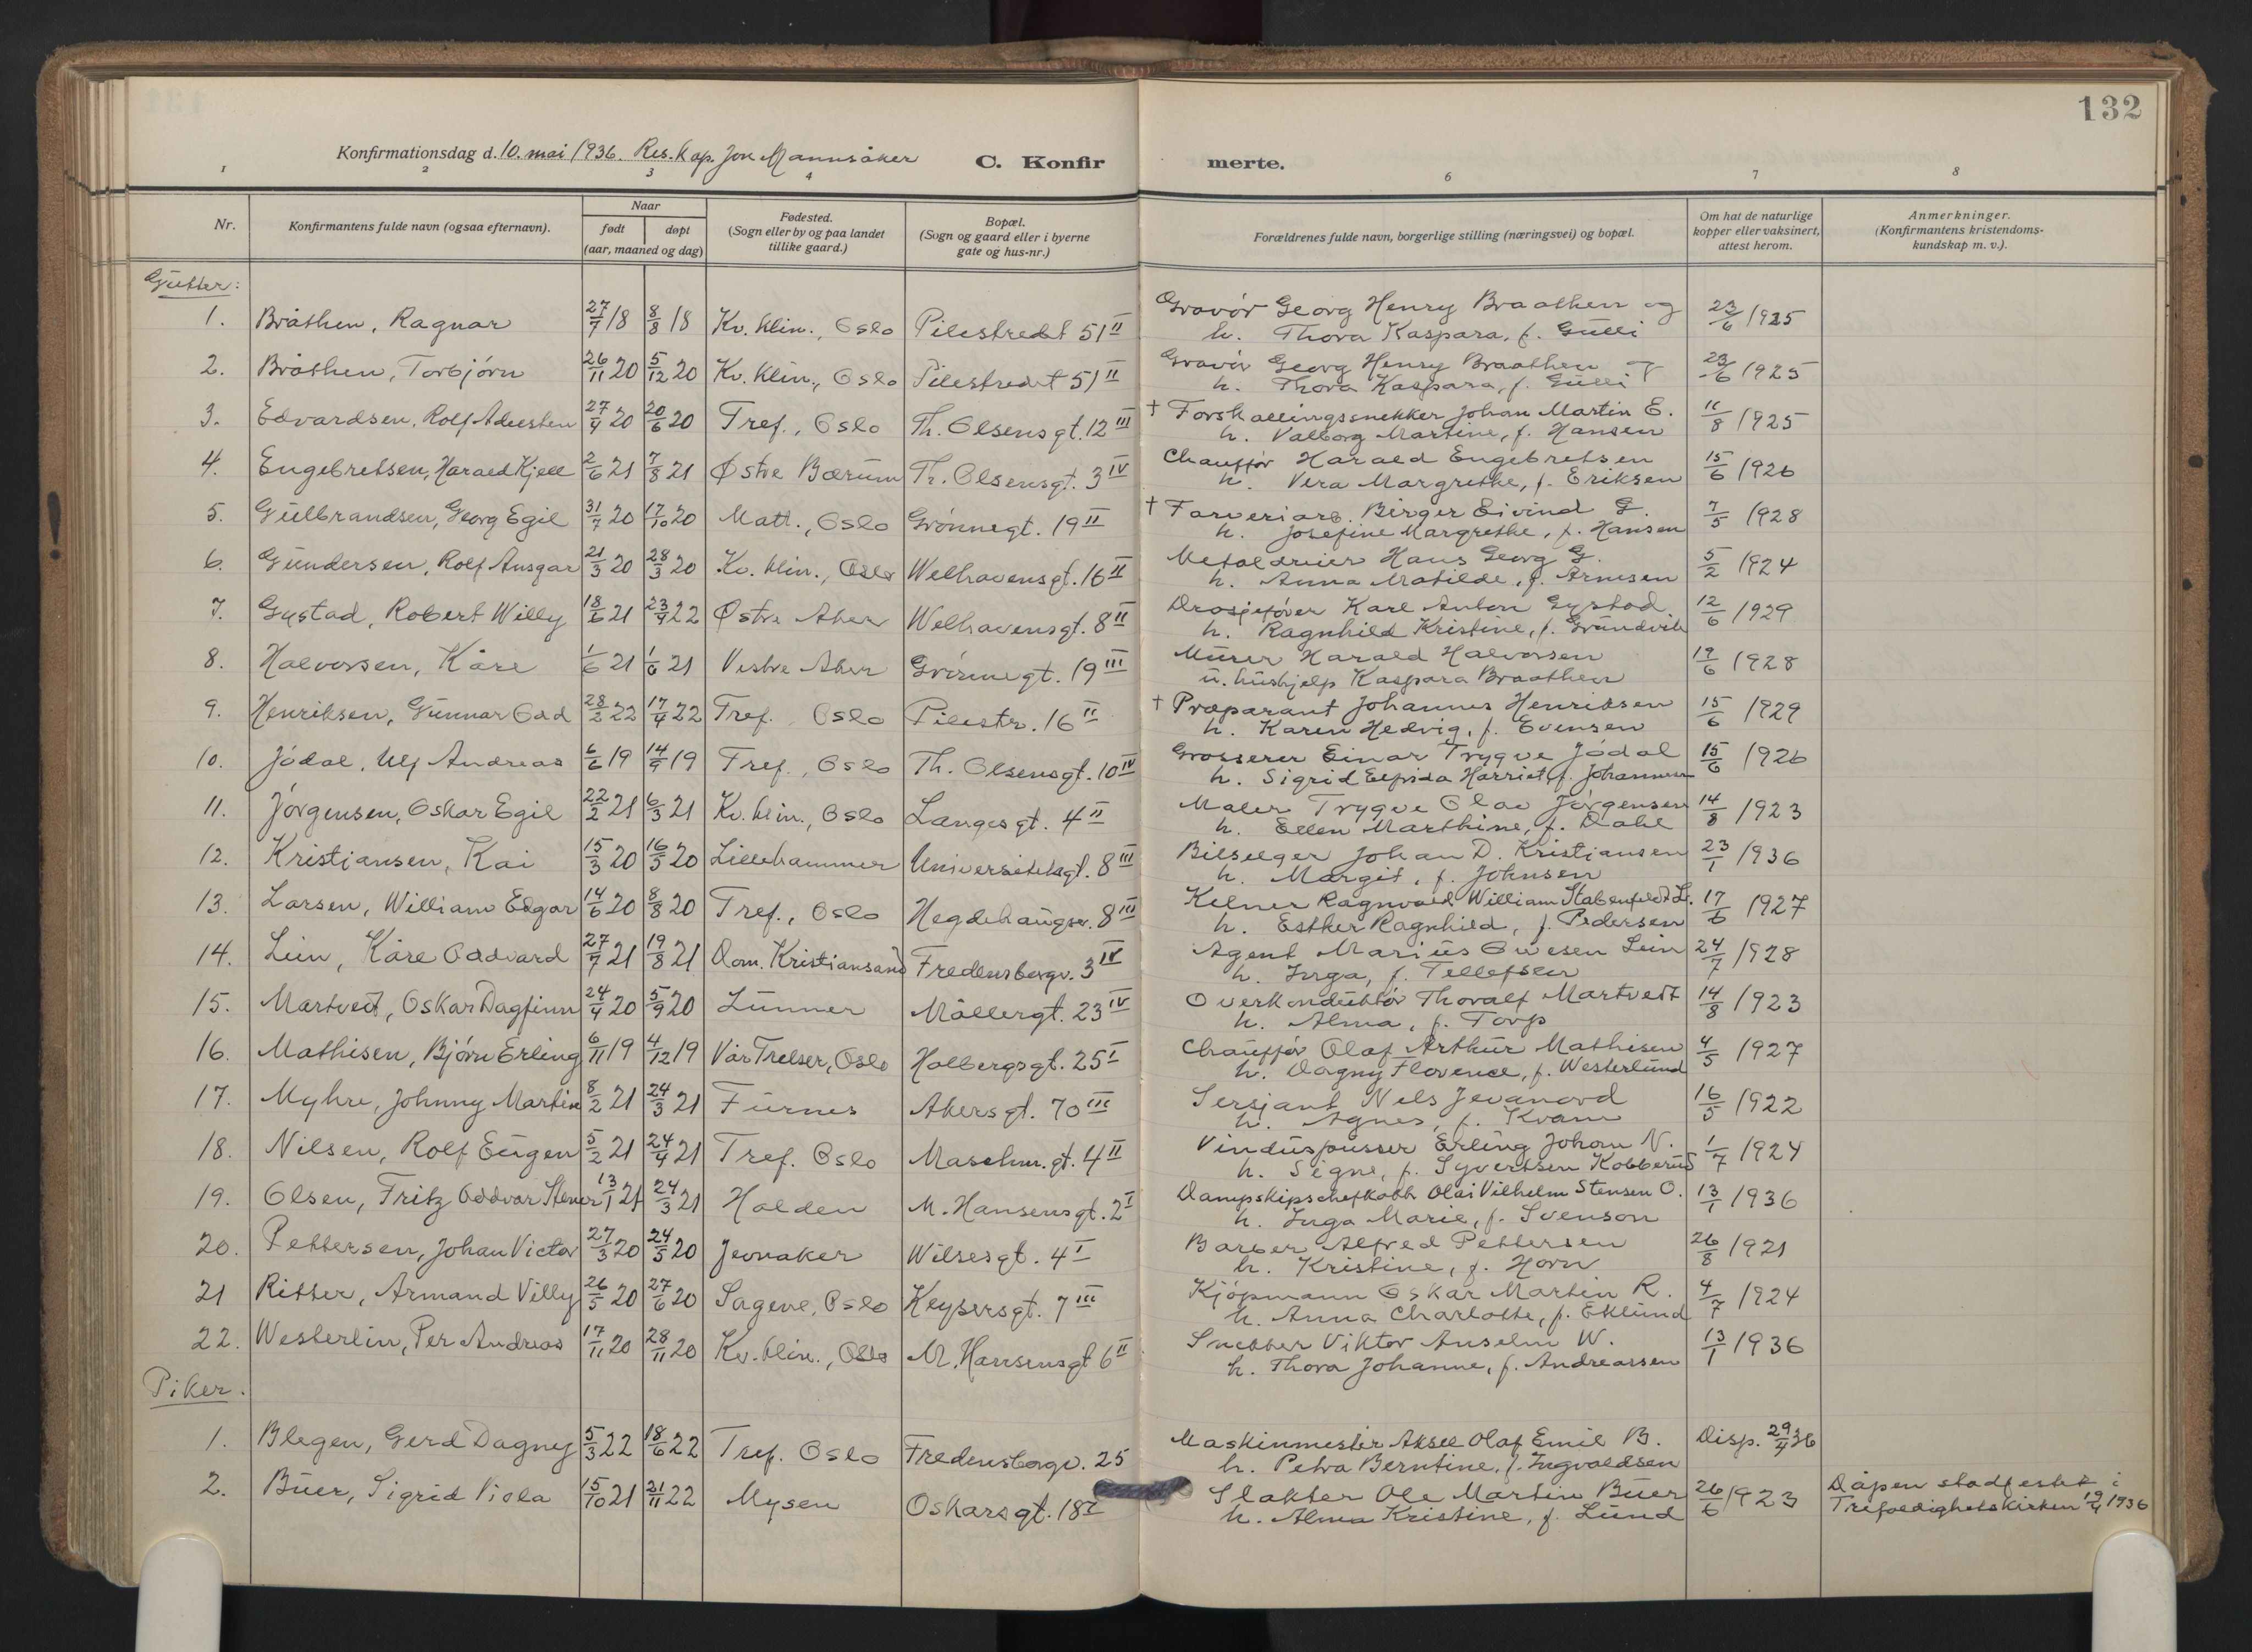 132
Konfirmationsdag d. 10. mai 1936. Res. Kap. Jon Mannsåker C. Konfir merte.
1 2 3 4 6 7 8
Nr. Konfirmantens fulde navn (ogsaa efternavn). Naar født døpt (aar, maaned og dag) Fødested. (Sogn eller by og paa landet tillike gaard.) Bopæl. (Sogn og gaard eller i byerne gate og hus-nr.) Forældrenes fulde navn, borgerlige stilling (næringsvei) og bopæl. Om hat de naturlige kopper eller vaksinert, attest herom. Anmerkninger. (Konfirmantens kristendoms- kundskap m. v.).
Gutter:
1. Bråthen, Ragnar 27/7 18 8/8 18 Kv. klin., Oslo Pilestredet 51 II Gravør Georg Henry Braathen og 23/6 1925
h. Thora Kaspara, f. Gulli
2. Bråthen, Torbjørn 26/11 20 5/12 20 Kv. klin., Oslo Pilestredet 51 II Gravør Georg Henry Braathen 23/6 1925
h. Thora Kaspara, f. Gulli
3. Edvardsen, Rolf 27/4 20 20/6 20 Tref., Oslo Th. Olsensgt. 12 III † Forskallingssnekker Johan Martin E. 11/8 1925
h. Valborg Martine, f. Hansen
4. Engebretsen, Harald Kjell 2/6 21 7/8 21 Østre Bærum Th. Olsensgt. 3 IV Chauffør Harald Engebretsen 15/6 1926
h. Vera Margrethe, f. Eriksen
5. Gulbrandsen, Georg Egil 31/7 20 17/10 20 Matt., Oslo Grønnegt. 19 II † Farveriarb. Birger Eivind G. 7/5 1928
h. Josefine Margrethe, f. Hansen
6. Gundersen, Rolf Ansgar 21/3 20 28/3 20 Kv. klin., Oslo Welhavensgt. 16 II Metaldreier Hans Georg G. 5/2 1924
h. Anna Matilde, f. Arnesen
7. Gystad, Robert Willy 18/6 21 23/4 22 Østre Aker Welhavensgt. 8 II Drosjefører Karl Anton Gystad 12/6 1929
h. Ragnhild Kristine, f. Grundvik
8. Halvorsen, Kåre 1/6 21 1/6 21 Vestre Aker Grønnegt. 19 III Murer Harald Halvorsen 19/6 1928
u. hushjelp Kaspara Braathen
9. Henriksen, Gunnar Odd 28/2 22 17/4 22 Tref. Oslo Pilestr. 16 II † Præparant Johannes Henriksen 15/6 1929
h. Karen Hedvig, f. Evensen
10. Jødal, Ulf Andreas 6/6 19 14/9 19 Tref., Oslo Th. Olsensgt. 10 IV Grosserer Einar Trygve Jødal 15/6 1926
h. Sigrid Elfrida Harriet, f. Johannesen
11. Jørgensen, Oskar Egil 22/2 21 6/3 21 Kv. klin., Oslo Langesgt. 4 II Maler Trygve Olav Jørgensen 14/8 1923
h. Ellen Marthine, f. Dahl
12. Kristiansen, Kai 15/3 20 16/5 20 Lillehammer Universitetsgt. 8 III Bilselger Johan D. Kristiansen 23/1 1936
h. Margit, f. Johnsen
13. Larsen, William Edgar 14/6 20 8/8 20 Tref., Oslo Hegdehaugsv. 8 III Kelner Ragnvald William Stabenfeldt L. 17/6 1927
h. Esther Ragnhild, f. Pedersen
14. Lein, Kåre Oddvard 27/7 21 19/8 21 Dom. Kristiansand Fredensborgv. 3 IV Agent Marius Ovesen Lein 24/7 1928
h. Inga, f. Tellefsen
15. Martvedt, Oskar Dagfinn 24/4 20 5/9 20 Lunner Møllergt. 23 IV Overkonduktør Thoralf Martvedt 14/8 1923
h. Alma, f. Torp
16. Mathisen, Bjørn Erling 6/11 19 4/12 19 Vår Frelser, Oslo Holbergsgt. 25 I Chauffør Olaf Arthur Mathisen 4/5 1927
h. Dagny Florence, f. Westerlund
17. Myhre, Johnny Martin 8/2 21 24/3 21 Furnes Akersgt. 70 III Sersjant Nels Jevanord 16/5 1922
h. Agnes, f. Kvam
18. Nilsen, Rolf Eugen 5/2 21 24/4 21 Tref. Oslo Maschm. gt. 4 II Vinduspusser Erling Johan N. 1/7 1924
h. Signe, f. Syvertsen Kobberud
19. Olsen, Fritz Oddvar Stener 13/1 21 24/3 21 Halden M. Hansensgt. 2 I Dampskipschefkokk Olai Vilhelm Stensen O. 13/1 1936
h. Inga Marie, f. Svenson
20. Pettersen, Johan Victor 27/3 20 24/5 20 Jevnaker Wilsesgt. 4 I Barber Alfred Pettersen 26/8 1921
h. Kristine, f. Horn
21 Ritter, Armand Villy 26/5 20 27/6 20 Sagene, Oslo Keysersgt. 7 III Kjøpmann Oskar Martin R. 4/7 1924
h. Anna Charlotte, f. Eklund
22. Westerlin, Per Andreas 17/11 20 28/11 20 Kv. klin., Oslo M. Hansensgt 6 II Snekker Viktor Anselm W. 13/1 1936
h. Thora Johanne, f. Andreassen
Piker.
1. Blegen, Gerd Dagny 5/3 22 18/6 22 Tref. Oslo Fredensborgv. 25 Maskinmester Aksel Olaf Emil B. Disp. 29/4 36
h. Petra Berntine, f. Ingvaldsen
2. Buer, Sigrid Viola 15/10 21 21/11 22 Mysen Oskarsgt. 18 I Slakter Ole Martin Buer 26/6 1923 Dåpen stadfestet i
h. Alma Kristine, f. Lund Trefoldighetskirken 19/4 1936